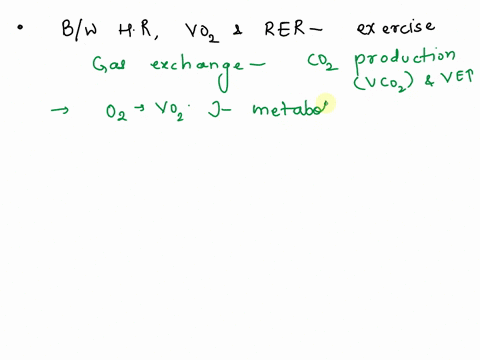 • B/W H.R, VO₂ & RER – exercise
Gas exchange – CO₂ production
(VCO₂) & VE↑
→ O₂ → VO₂. J– metabo